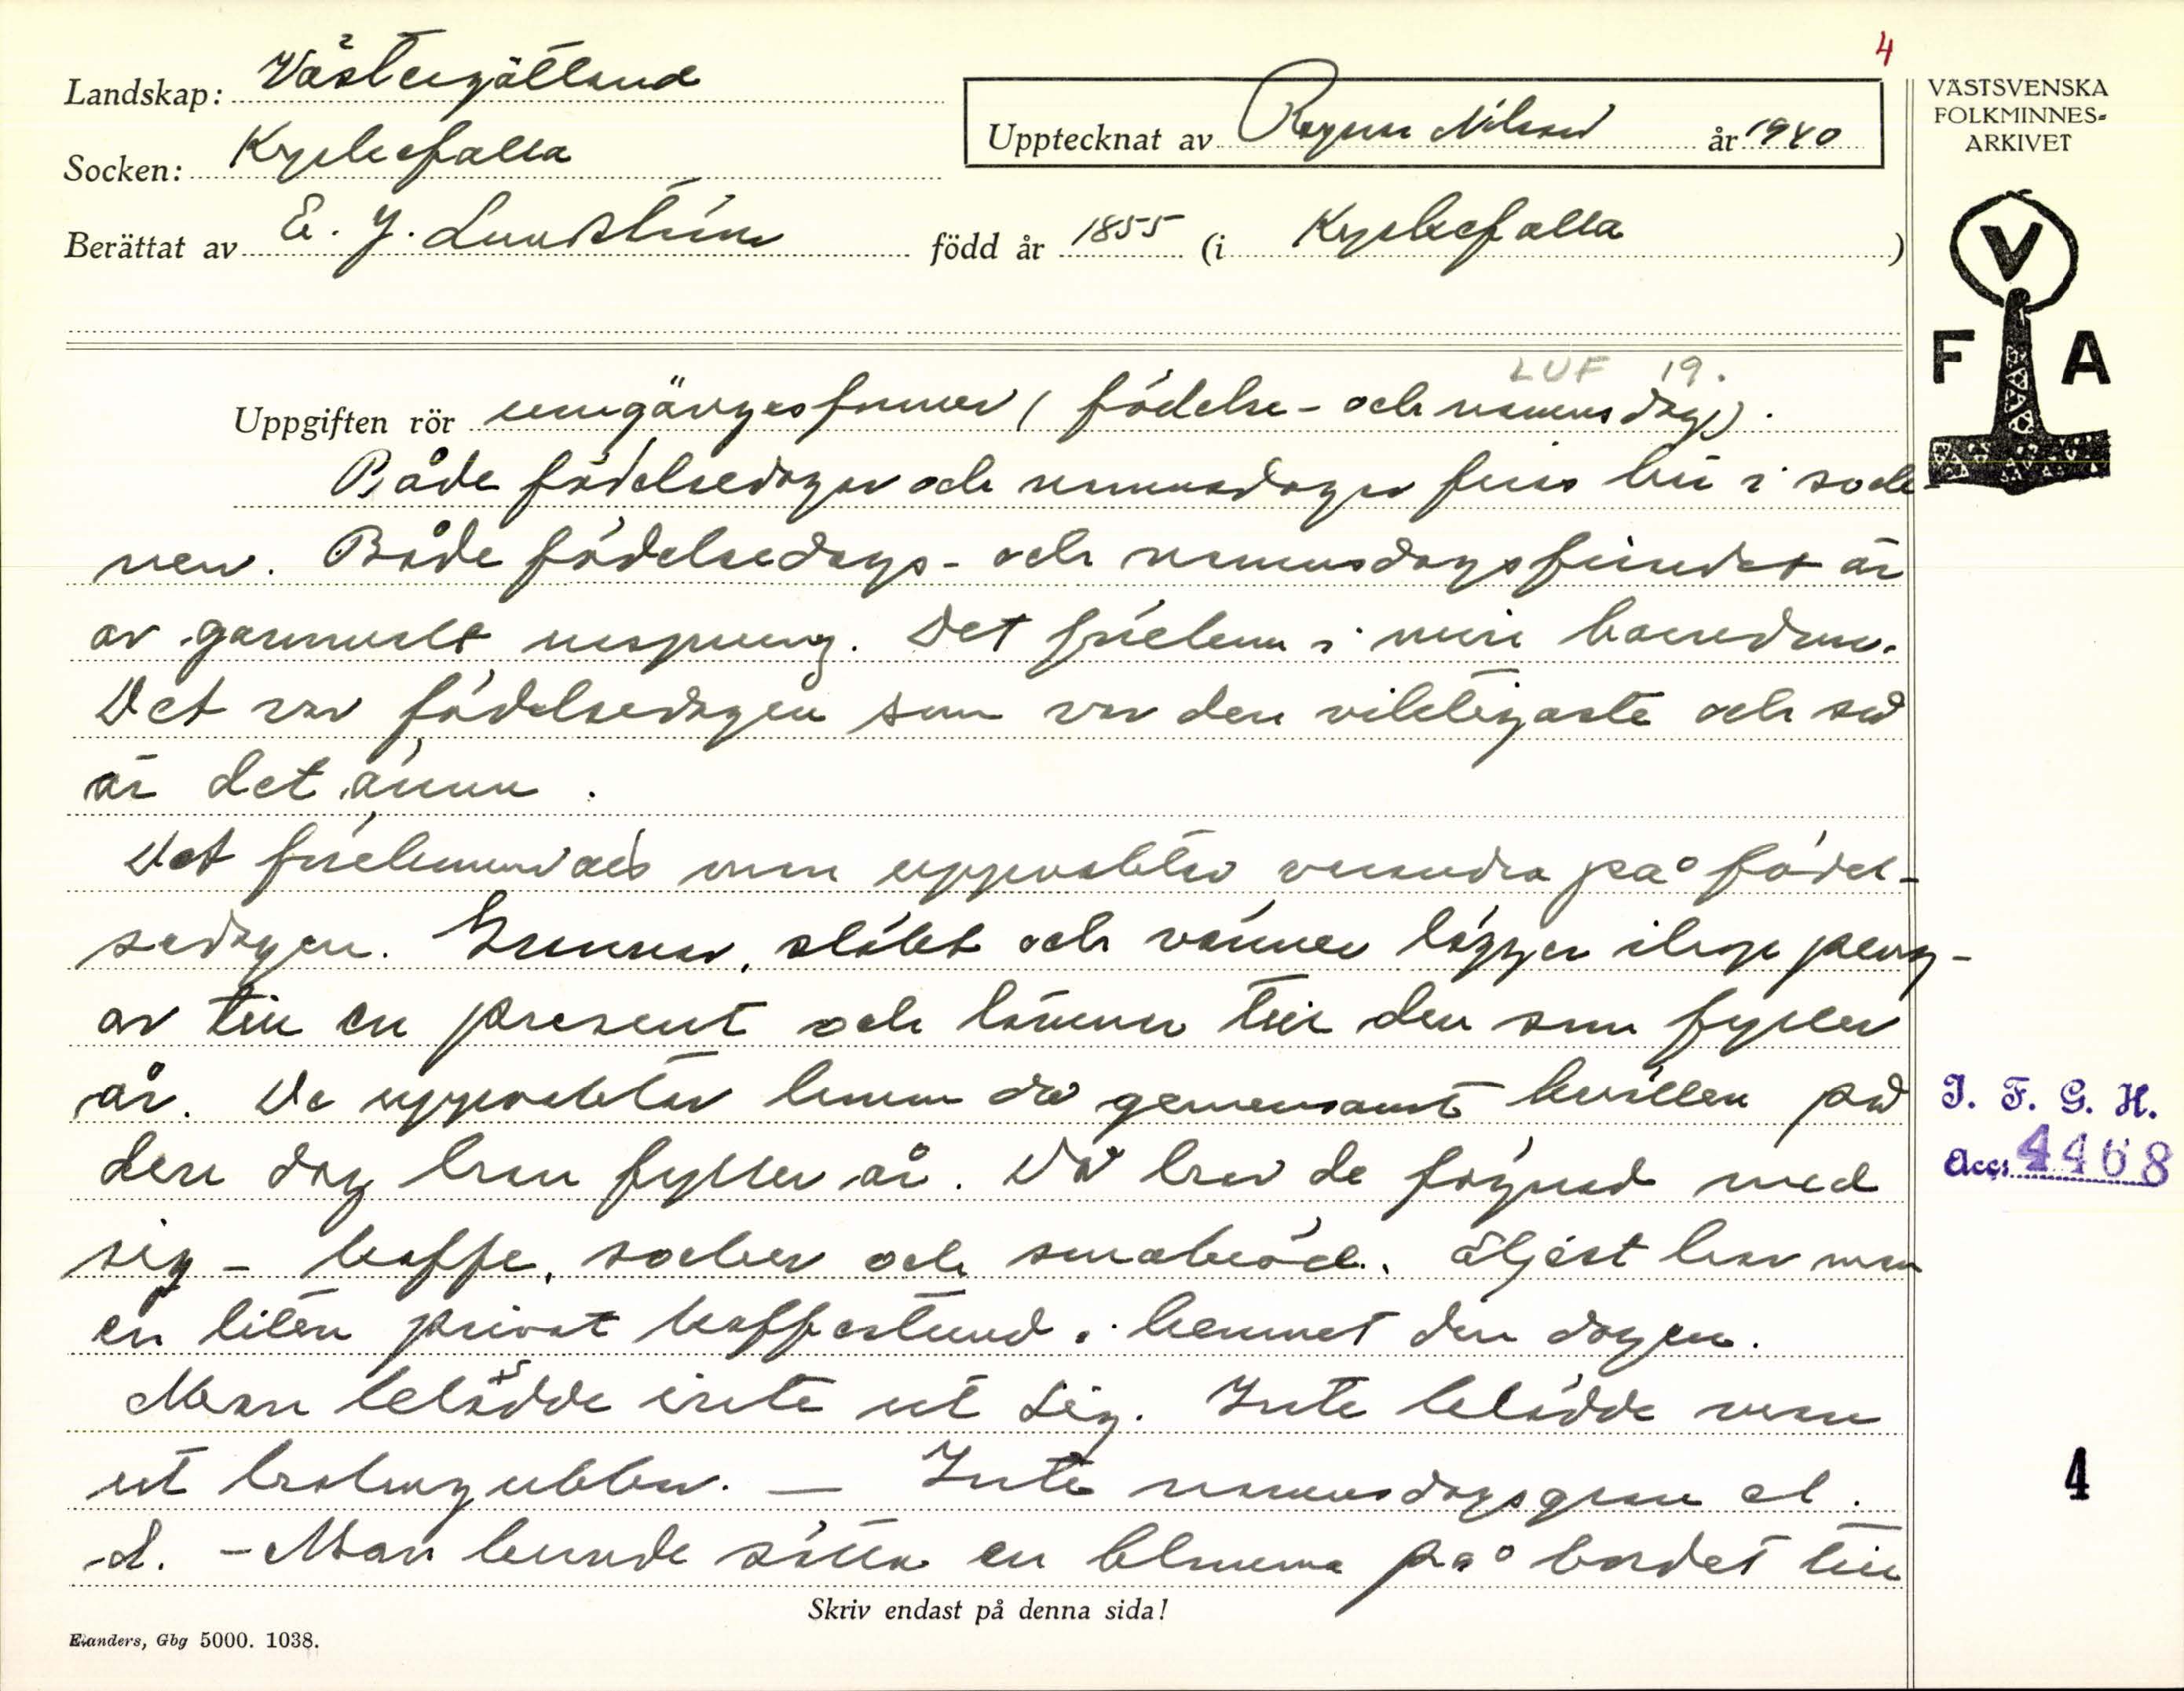 4
Landskap: Västergötland
Upptecknat av Ragnar Nilsson år 1940
VÄSTSVENSKA
FOLKMINNES-
ARKIVET
Socken: Kyrkefalla
Berättat av E. J. Lundström född år 1855 (i Kyrkefalla)
V
F A
LUF 19.
Uppgiften rör umgängesformer (födelse- och namnsdag).
Både födelsedagar och namnsdagar firas här i sock-
nen. Både födelsedags- och namnsdagsfirandet är
av gammalt ursprung. Det förekom i min barndom.
Det var födelsedagen som var den viktigaste och så
är det ännu.
Det förekommer att man uppvaktar varandra på födel-
sedagen. Grannar, släkt och vänner lägger ihop peng-
ar till en present och lämnar till den som fyller
år. De uppvaktar honom då gemensamt kvällen på
den dag han fyller år. Då har de förgnad med
sig - kaffe, socker och småbröd. Äljest har man
en liten privat kaffestund i hemmet den dagen.
Man klädde inte ut sig. Inte klädde man
ut halmgubbar. — Inte namnsdagsgran el.
d. - Man kunde sätta en blomma på bordet till
Skriv endast på denna sida!
Elanders, Gbg 5000. 1038.
I. F. G. H.
Acc. 4468
4